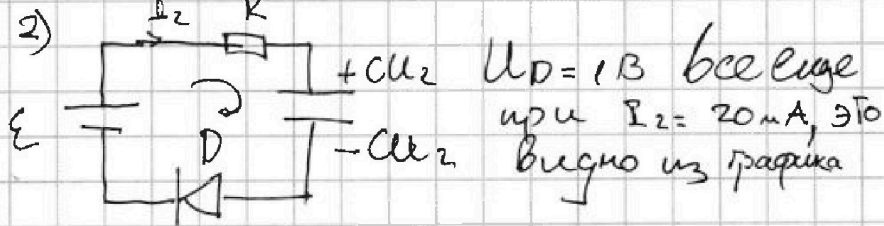 2)
I₂ R
ε
+CU₂
D
-CU₂
U_D = 1В все еще
при I₂ = 20мА, это
видно из графика